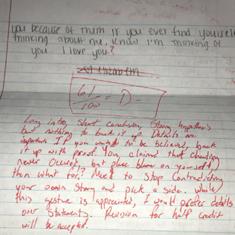 you because of them if you ever find yourself
thinking about me, know I'm thinking of
you. I love you.
61/100 = D-
Long intro, short conclusion, strong hypothesis
but nothing to back it up. Details are
important. If you want to be believed, back
it up with proof. You claim that cheating
never occurred, but place blame on yourself,
then what for? Need to stop contradicting
your own story and pick a side. While
this gesture is appreciated, I would prefer details
over statements. Revision for half credit
will be accepted.